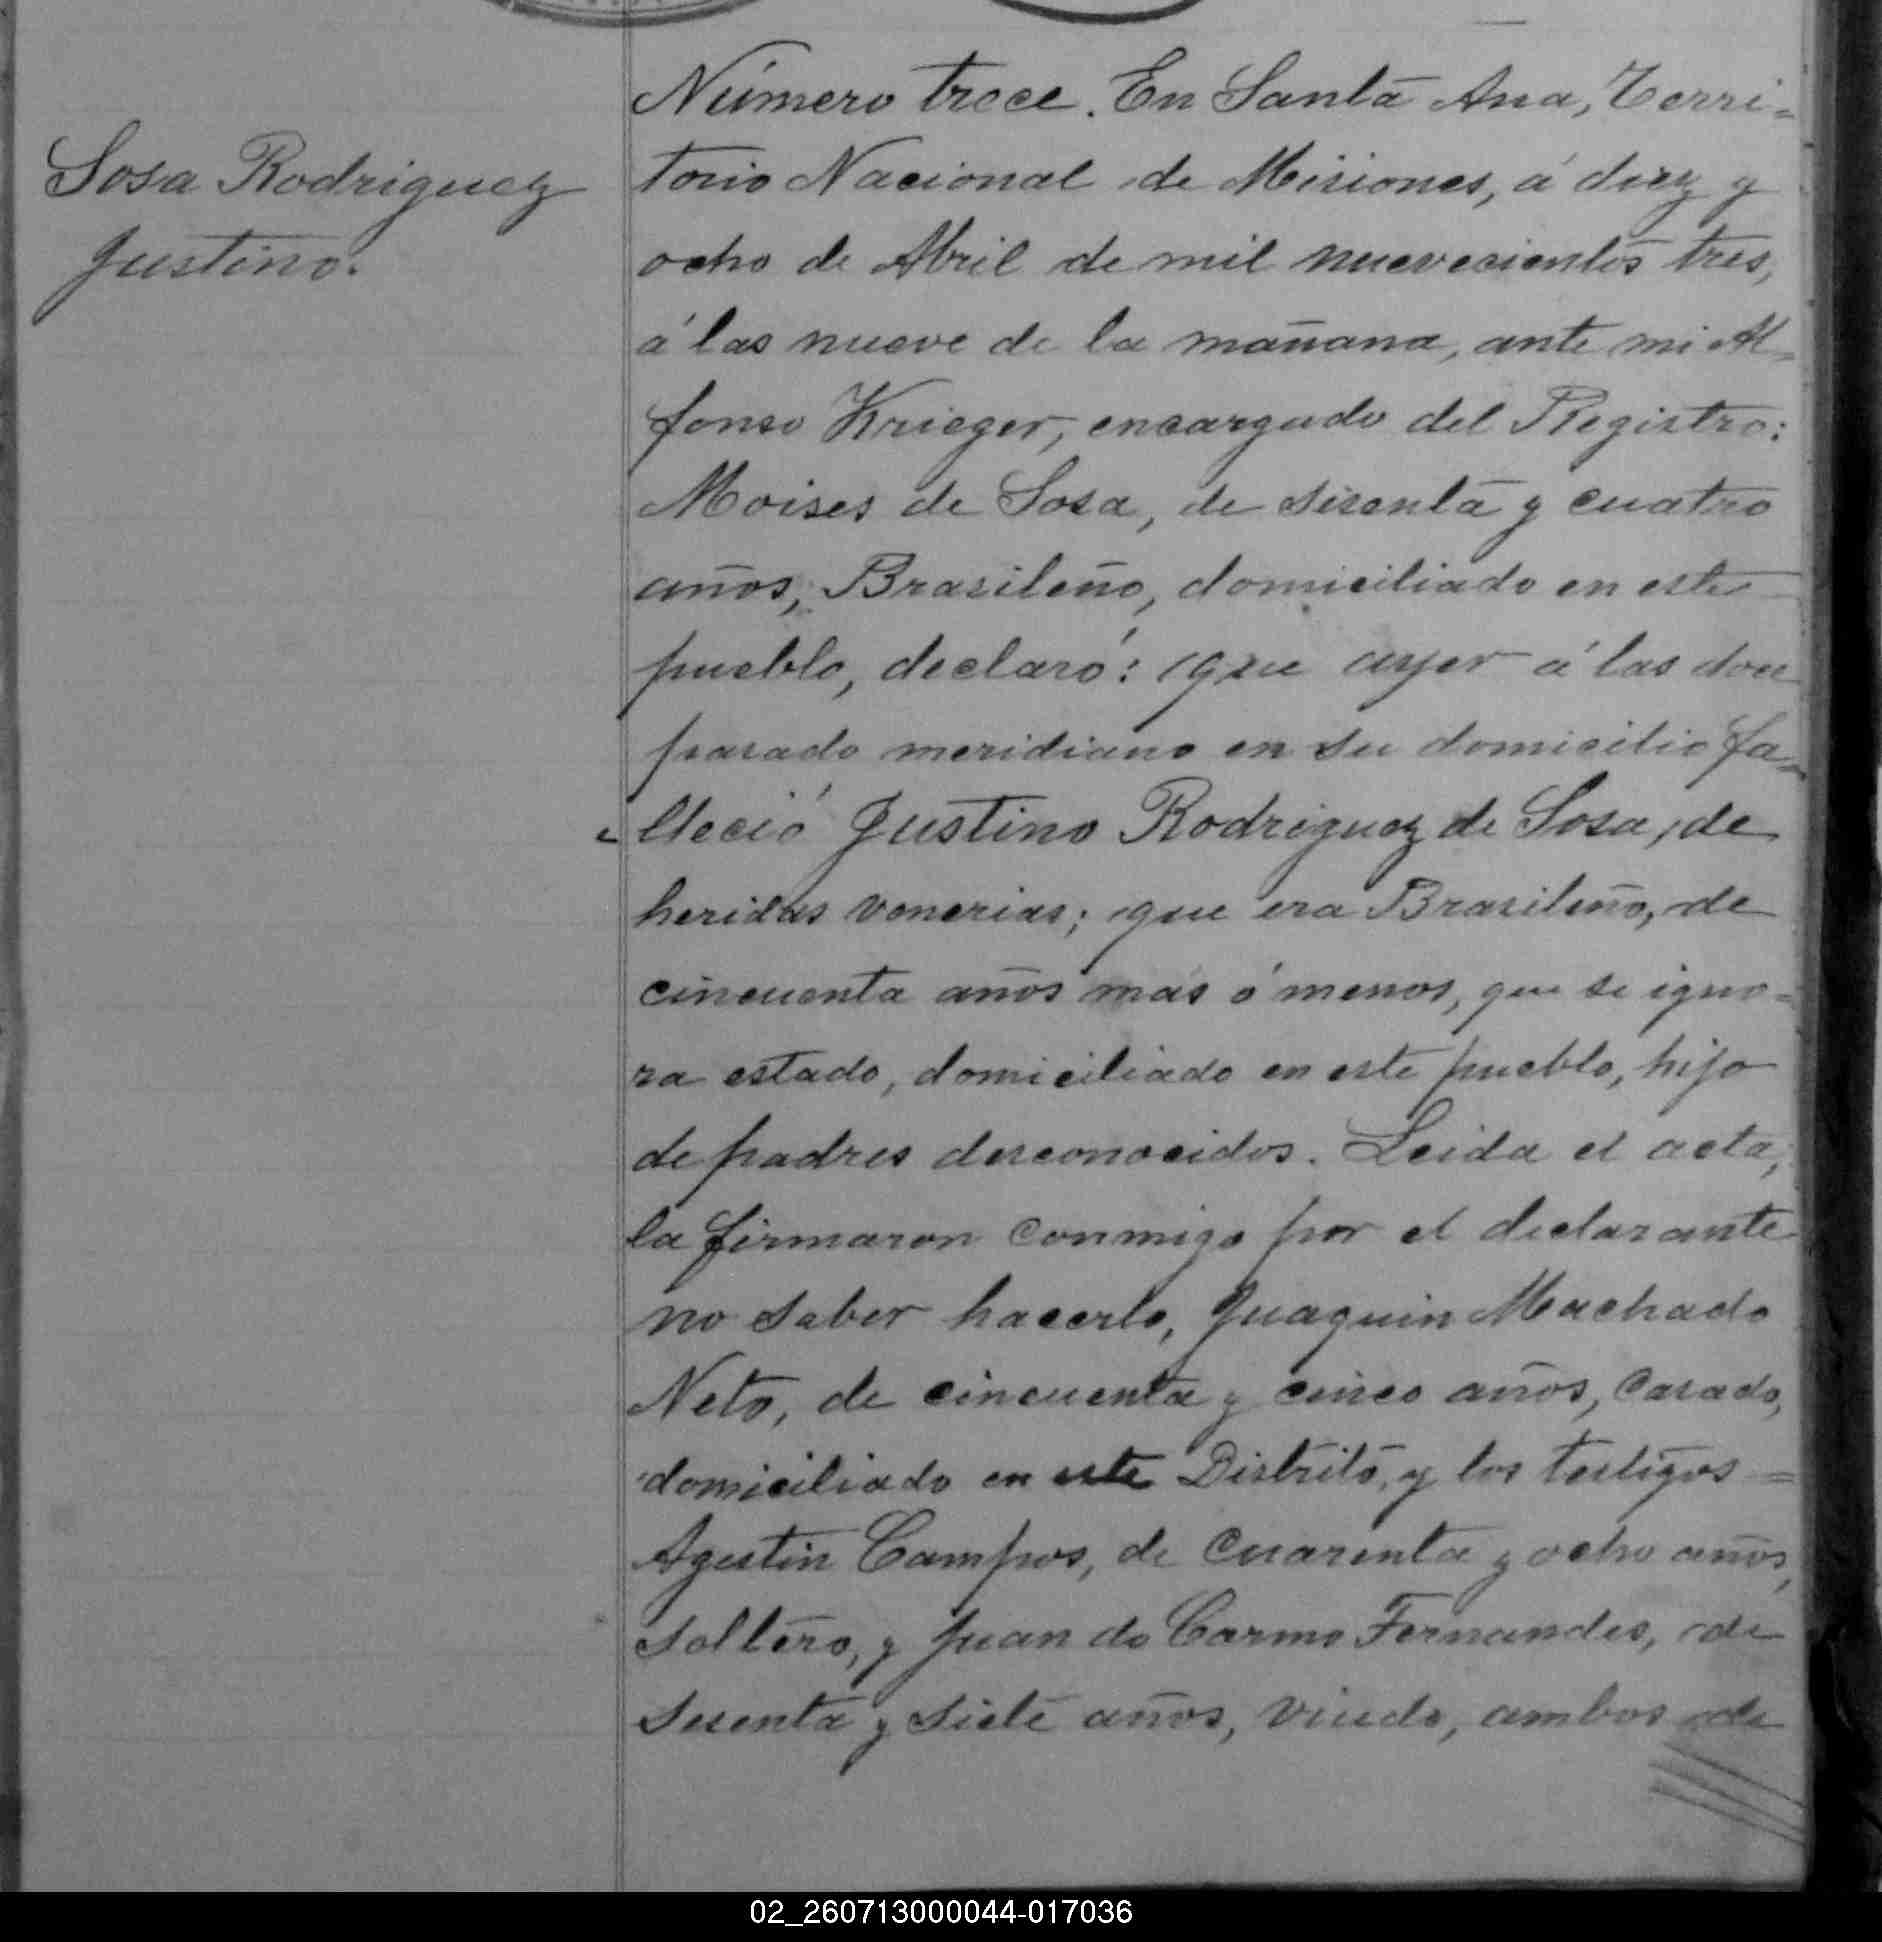 Sosa Rodriguez
Justino.
Número trece. En Santa Ana, Terri-
torio Nacional de Misiones, á diez y
ocho de Abril de mil nuevecientos tres,
á las nueve de la mañana, ante mi Al-
fonso Krieger, encargado del Registro:
Moises de Sosa, de sesenta y cuatro
años, Brasileño, domiciliado en este
pueblo, declaró: que ayer á las doce
pasado meridiano en su domicilio fa-
lleció Justino Rodriguez de Sosa, de
heridas venerias; que era Brasileño, de
cincuenta años mas ó menos, que se igno-
ra estado, domiciliado en este pueblo, hijo
de padres desconocidos. Leida el acta,
la firmaron conmigo por el declarante
no saber hacerlo, Juaquin Machado
Neto, de cincuenta y cinco años, casado,
domiciliado en este Distrito, y los testigos
Agustin Campos, de cuarenta y ocho años,
soltero, y Juan do Carmo Fernandes, de
sesenta y siete años, viudo, ambos de
02_260713000044-017036